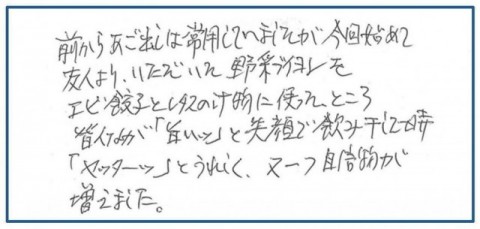 前からあご出しは常用していましたが今回始めて
友人より、いただいた野菜ブイヨンを
エビ餃子とレタスの汁物に使ったところ
皆んなが「旨いッ」と笑顔で飲み干した時
「ヤッターッ」とうれしく、又一つ自信物が
増えました。